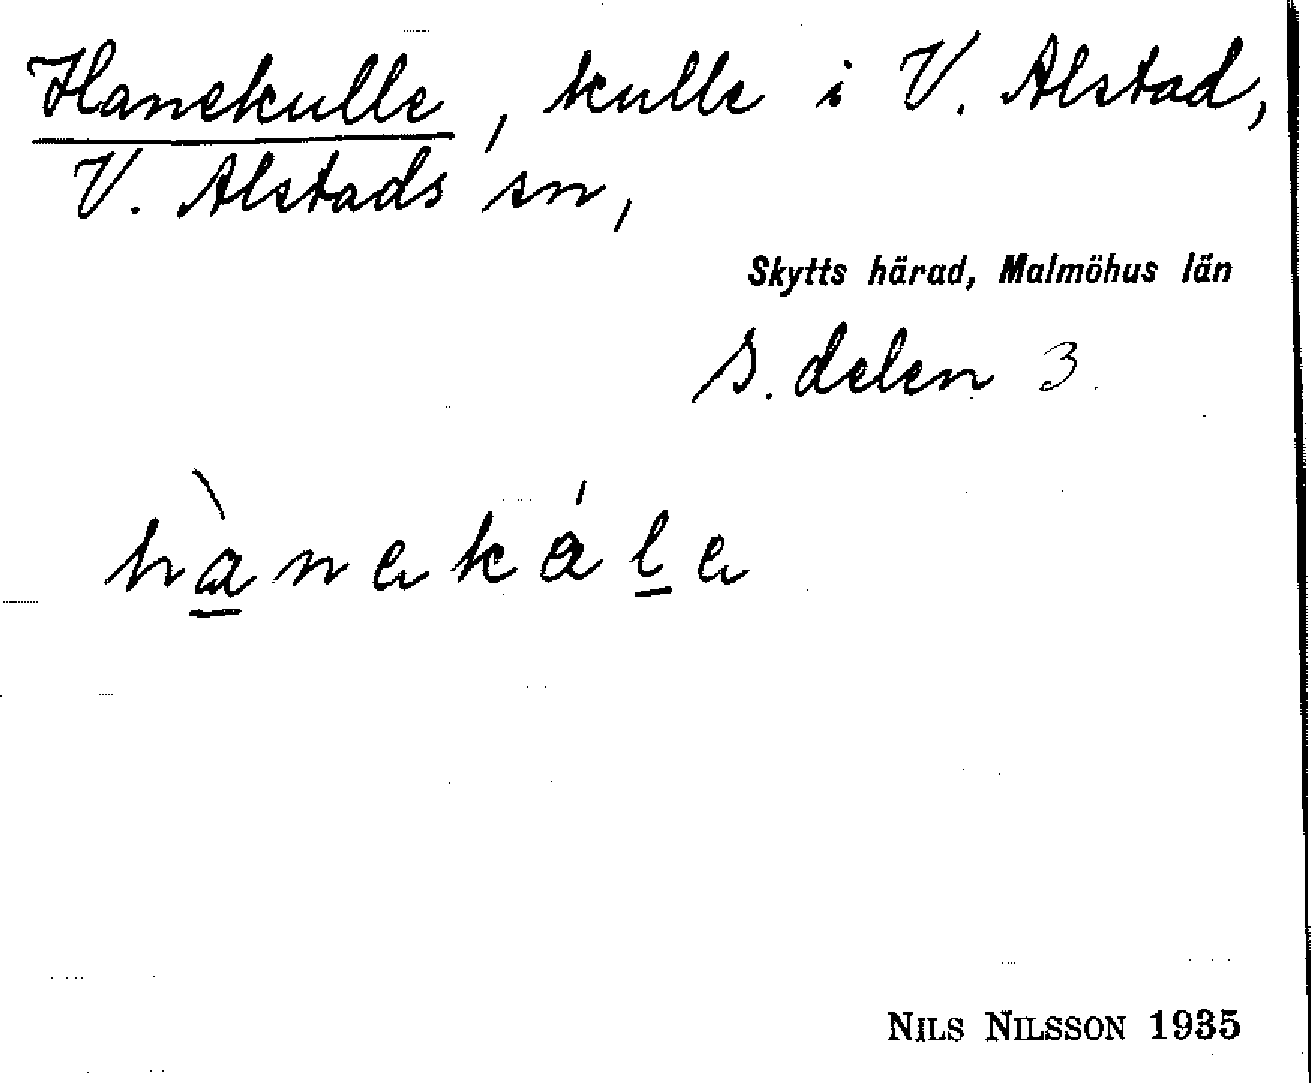 Hanekulle, kulle i V. Alstad,
V. Alstads sn,
Skytts härad, Malmöhus län
S. delen 3.
hànekále
NILS NILSSON 1935